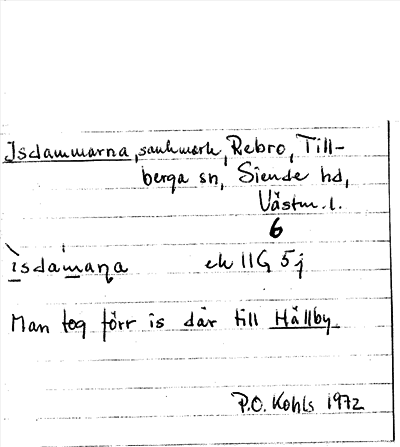 Isdammarna, sankmark, Rebro, Till-
berga sn, Siende hd,
Västm. l.
6
ìsdàmaṇa ek 11G 5j
Man tog förr is där till Hällby.
P.O. Kohls 1972